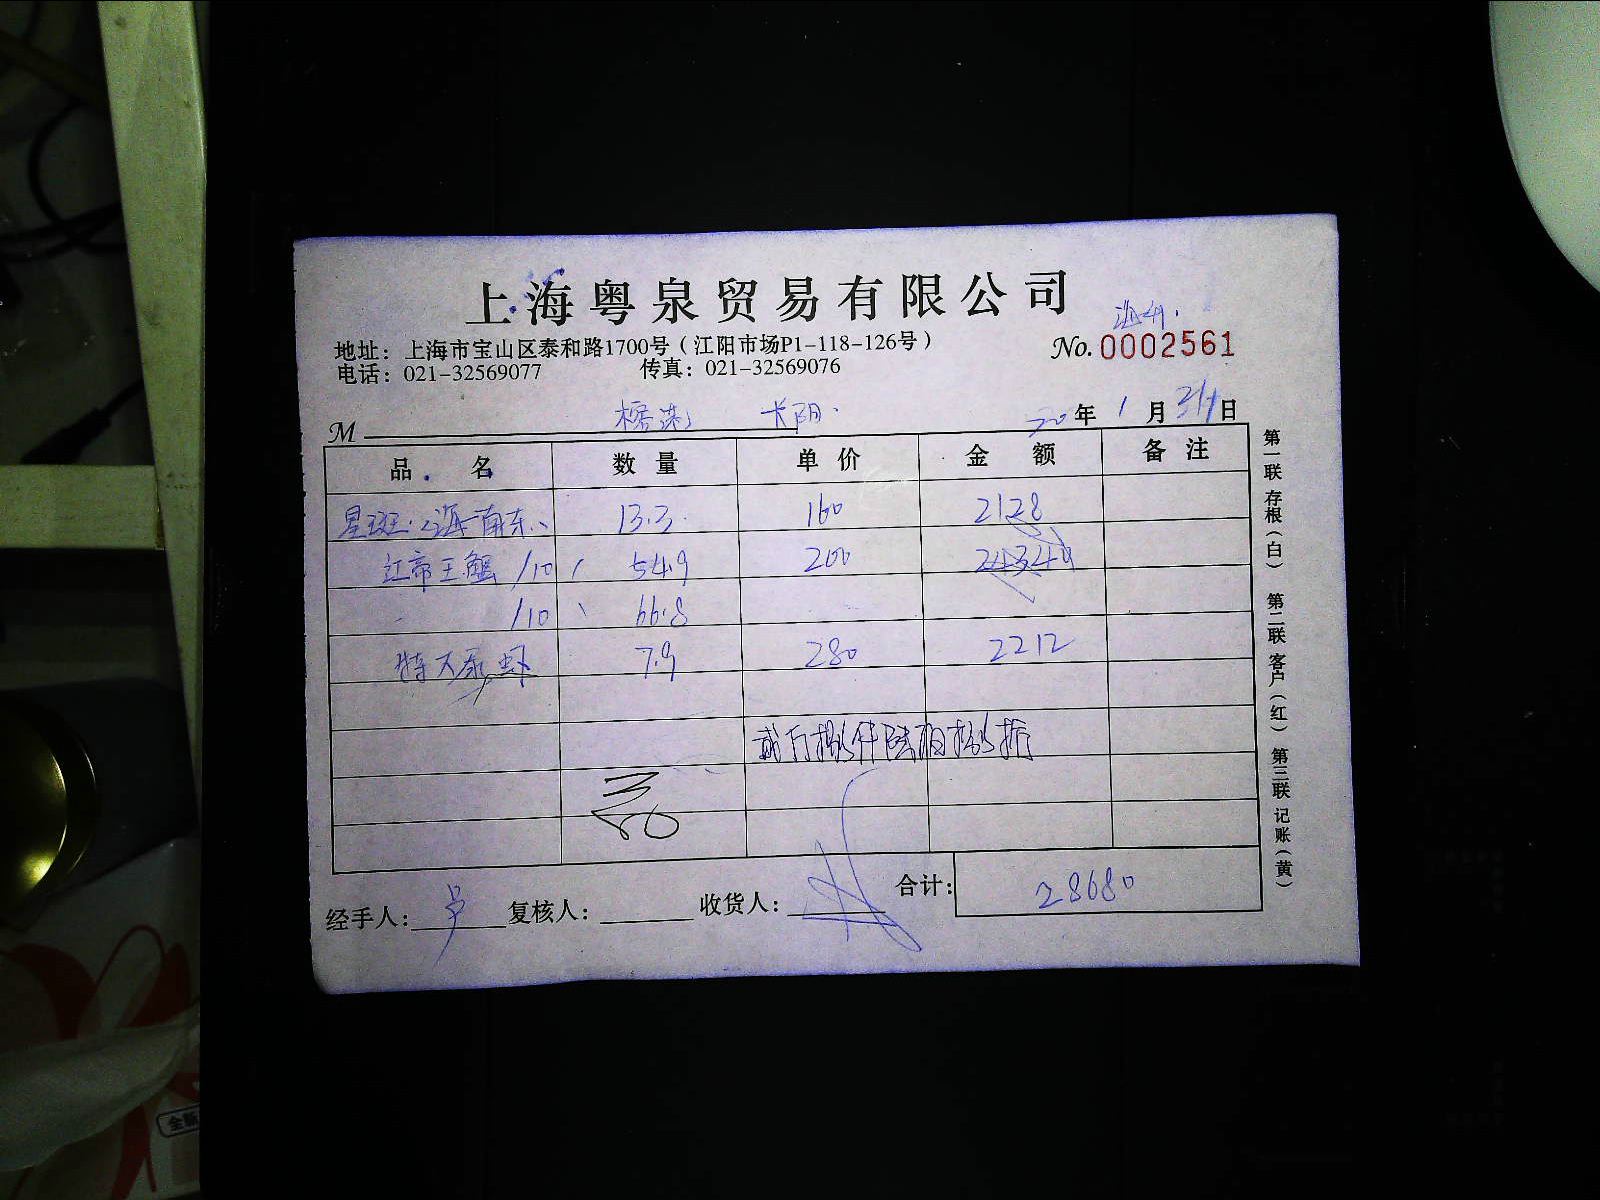 上海粤泉贸易有限公司
地址：上海市宝山区泰和路1700号（江阳市场P1-118-126号）
No. 0002561
电话：021-32569077 传真：021-32569076
M 长阳. 20年1月 日
品 名 数 量 单 价 金 额 备 注
星斑 海南东 13.3 160 2128
红帝王蟹 /10 54.9 200
/10 66.8
特大 虾 7.9 280 2212
经手人： 复核人： 收货人： 合计： 28680
第一联 存根（白） 第二联 客户（红） 第三联 记账（黄）
全新